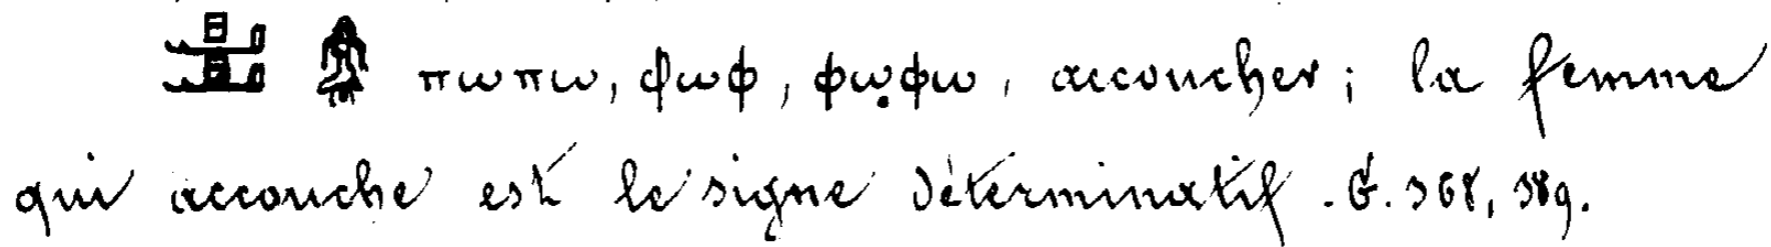 πωπω, φωφ, φωφω, accoucher; la femme
qui accouche est le signe déterminatif. G. 368, 389.